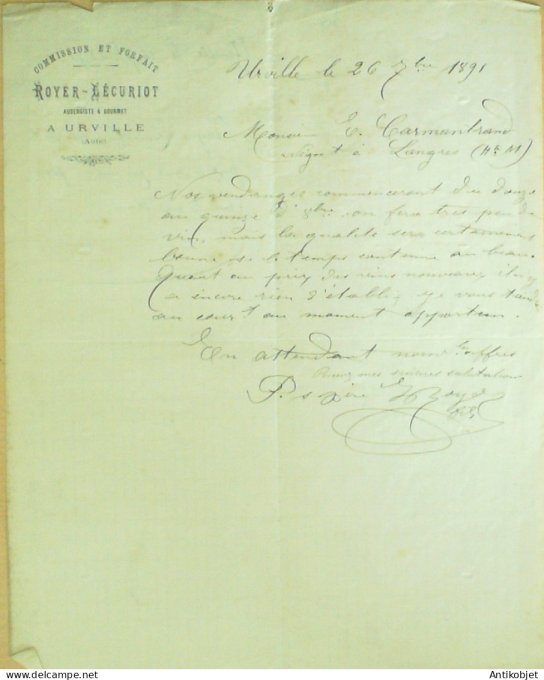 COMMISSION ET FORFAIT
ROYER-LÉCURIOT
AUBERGISTE & GOURMET
A URVILLE
(Aube)
Urville le 26 7bre 1891
Monsieur E. Carmantrand
Négt à Langres (Hte M)
Nos vendanges commenceront du douze
au quinze d' 8bre on fera très peu de
vin, mais la qualité sera certainement
bonne si le temps continue au beau.
Quant au prix des vins nouveaux il n'y
a encore rien d'établi, je vous tiendrai
au court au moment opportun.
En attendant
mes sincères salutations
P. s père Royer
Antikobjet